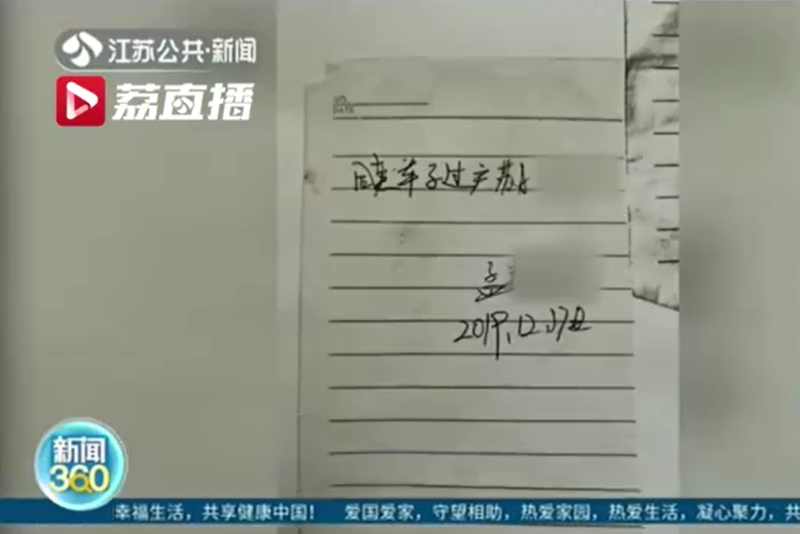 江苏公共·新闻
荔直播
同意车子过户苏
孟
2019.12
新闻
360
幸福生活，共享健康中国！ 爱国爱家，守望相助，热爱家园，热爱生活，凝心聚力，共